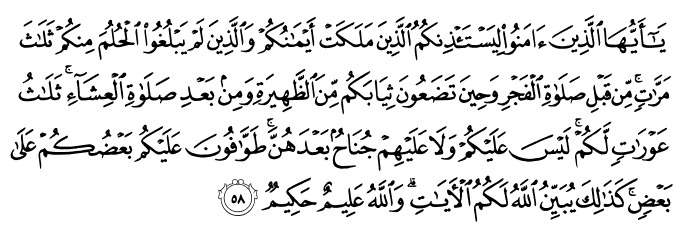 يَـٰٓأَيُّهَا ٱلَّذِينَ ءَامَنُوا۟ لِيَسْتَـْٔذِنكُمُ ٱلَّذِينَ مَلَكَتْ أَيْمَـٰنُكُمْ وَٱلَّذِينَ لَمْ يَبْلُغُوا۟ ٱلْحُلُمَ مِنكُمْ ثَلَـٰثَ
مَرَّٰتٍ ۚ مِّن قَبْلِ صَلَوٰةِ ٱلْفَجْرِ وَحِينَ تَضَعُونَ ثِيَابَكُم مِّنَ ٱلظَّهِيرَةِ وَمِنۢ بَعْدِ صَلَوٰةِ ٱلْعِشَآءِ ۚ ثَلَـٰثُ
عَوْرَٰتٍ لَّكُمْ ۚ لَيْسَ عَلَيْكُمْ وَلَا عَلَيْهِمْ جُنَاحٌۢ بَعْدَهُنَّ ۚ طَوَّٰفُونَ عَلَيْكُم بَعْضُكُمْ عَلَىٰ
بَعْضٍ ۚ كَذَٰلِكَ يُبَيِّنُ ٱللَّهُ لَكُمُ ٱلْـَٔايَـٰتِ ۗ وَٱللَّهُ عَلِيمٌ حَكِيمٌ ٥٨